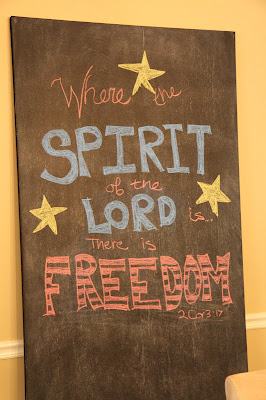 Where the
SPIRIT
of the
LORD is..
There is
FREEDOM
2 Cor 3:17